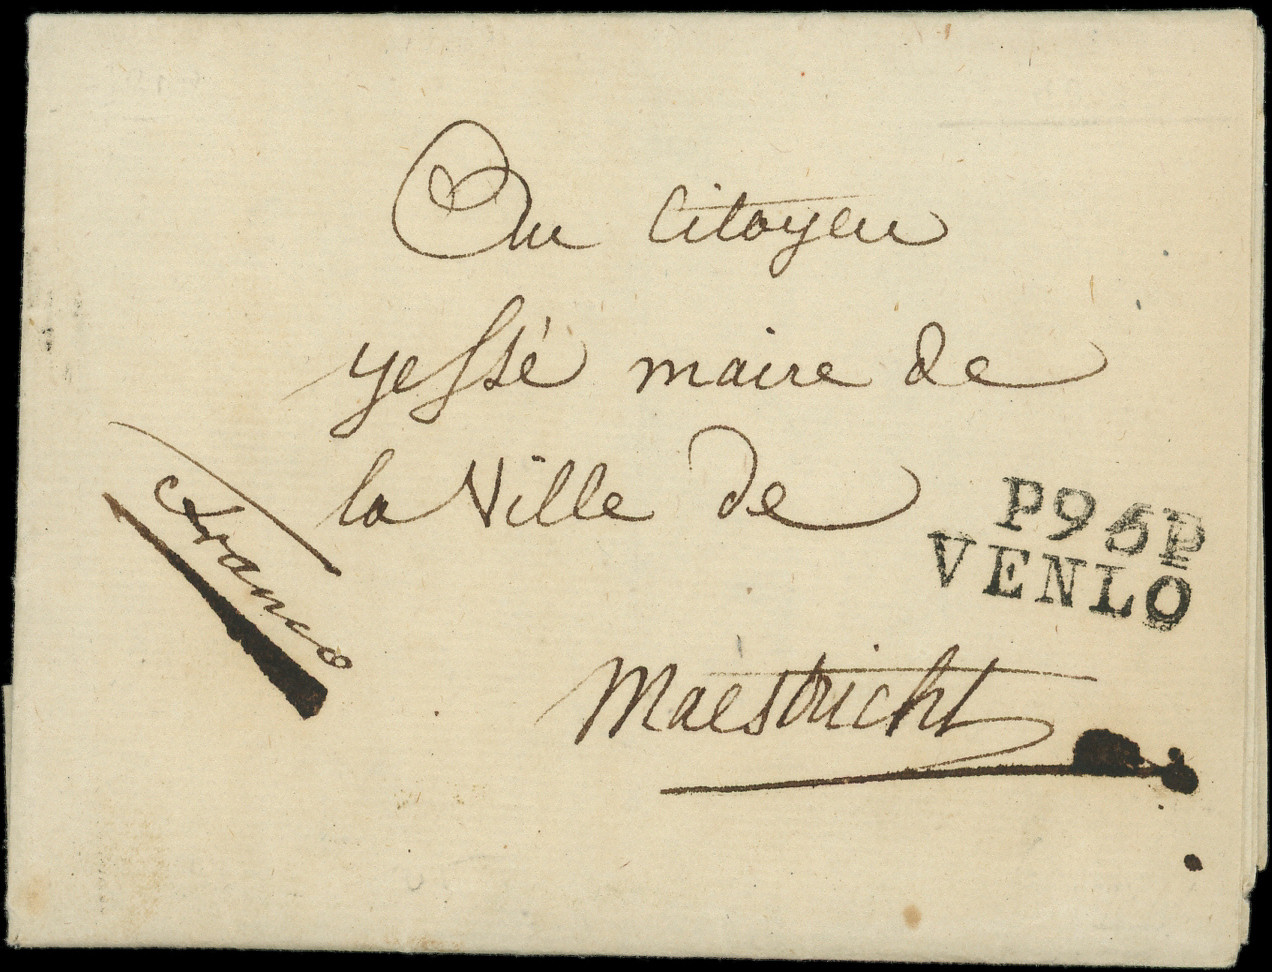 Au citoyen
yessé maire de
la Ville de
Franco
P95P
VENLO
Maestricht